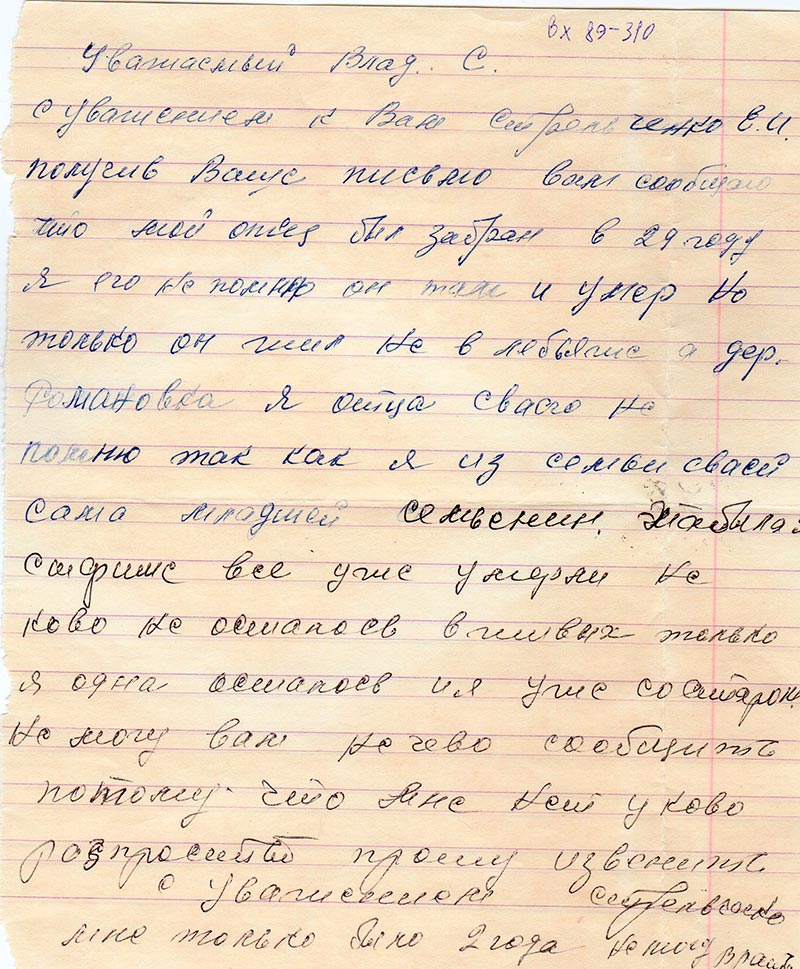 Вх 89-310
Уважаемый Влад. С.
с уважением к Вам Стрельченко Е.И.
получив Ваше письмо вам сообщаю
што мой отец был забран в 29 году
я его не помню он там и умер но
только он жил не в лебяжье а дер.
Романовка я отца сваего не
помню так как я из семьи сваей
сама младшей семьенин. Я была
старшие все уже умерли не
ково не осталось в живых только
я одна осталось и я уже состарон.
не могу вам нечево сообщить
потому што мне нет у ково
розпросить прошу извенить
с Уважением Стрельченко
мне только было 2 года не могу врать